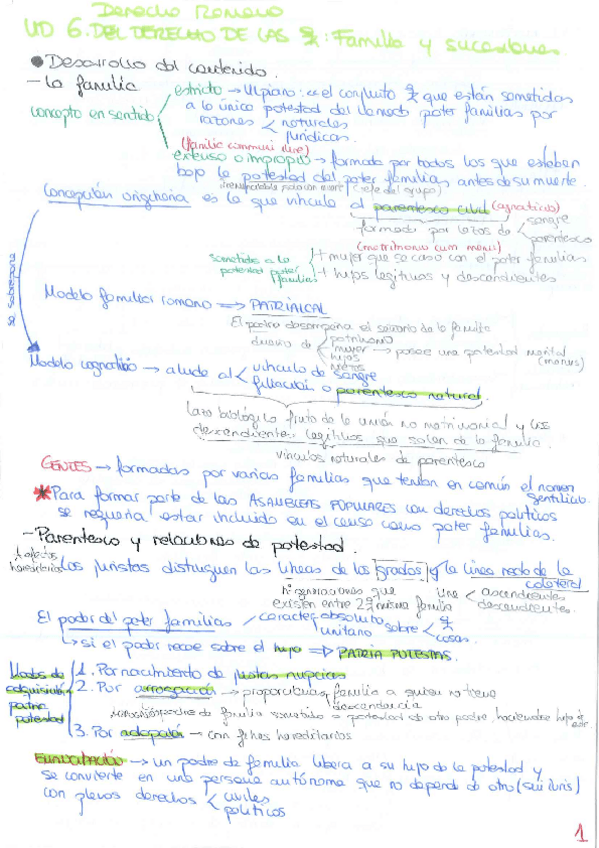 Derecho Romano
UD 6. DEL DERECHO DE LAS : Familia y sucesiones.
● Desarrollo del contenido.
- La familia
concepto en sentido
estricto → Ulpiano: es el conjunto que están sometidas
a la única potestad del llamado pater familias por
razones < naturales
jurídicas.
(familia communi iure)
extenso o impropio → formada por todos los que estaban
bajo la potestad del pater familias antes de su muerte.
(jefe del grupo)
Concepción originaria es la que vincula al parentesco civil (agnaticio)
formada por lazos de < sangre
parentesco
(matrimonio cum manus)
sometidos a la potestad pater familias
+ mujer que se casa con el pater familias
+ hijos legítimos y descendientes
se sobrepone
Modelo familiar romano ⇒ PATRIARCAL
El padre desempeña el señorío de la familia
dueño de < patrimonio
mujer → posee una potestad marital (manus)
hijos
nietos
Modelo cognaticio → alude al < vínculo de sangre
filiación o parentesco natural.
Lazo biológico fruto de la unión no matrimonial y los
descendientes legítimos que salen de la familia.
vínculos naturales de parentesco
GENTES → formadas por varias familias que tenían en común el nomen
gentilicio.
* Para formar parte de las ASAMBLEAS POPULARES con derechos políticos
se requería estar incluido en el censo como pater familias.
- Parentesco y relaciones de potestad.
A efectos hereditarios
Los juristas distinguen las líneas de los grados y la línea recta de la
colateral
nº generaciones que
existen entre 2 misma familia
une < ascendientes
descendientes.
El poder del pater familias / carácter absoluto
unitario sobre <
cosas.
↳ si el poder recae sobre el hijo ⇒ PATRIA POTESTAS.
Modos de adquisición patria potestad
1. Por nacimiento de justas nupcias
2. Por arrogación → proporciona familia a quien no tiene
descendencia
padre de familia sometido a potestad de otro padre, haciéndose hijo de
este.
3. Por adopción → con fines hereditarios
Emancipación → un padre de familia libera a su hijo de la potestad y
se convierte en una persona autónoma que no depende de otro (sui iuris)
con plenos derechos < civiles
políticos
1